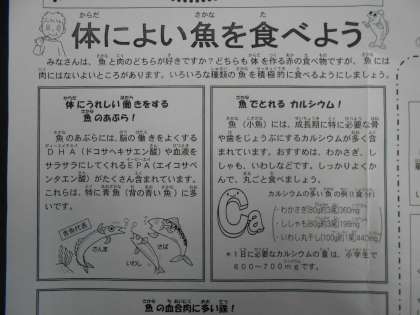 体によい魚を食べよう
みなさんは、魚と肉のどちらが好きですか？どちらも体を作る赤の食べ物ですが、魚には
肉にはないよいところがあります。いろいろな種類の魚を積極的に食べるようにしましょう。
体にうれしい働きをする
魚のあぶら！
魚のあぶらには、脳の働きをよくする
DHA（ドコサヘキサエン酸）や血液を
サラサラにしてくれるEPA（エイコサペ
ンタエン酸）がたくさん含まれています。
これらは、特に青魚（背の青い魚）に多
いです。
青魚代表
さんま
いわし
さば
魚でとれるカルシウム！
魚（小魚）には、成長期に特に必要な骨
や歯をじょうぶにするカルシウムが多く含
まれています。おすすめは、わかさぎ、し
しゃも、いわしなどです。しっかりよくか
んで、丸ごと食べましょう。
カルシウムの多い魚の例（1食分）
Ca
・わかさぎ
・ししゃも
・いわし丸干し
＊1日に必要なカルシウムの量は、小学生で
600～700mgです。
魚の血合肉に多い鉄！